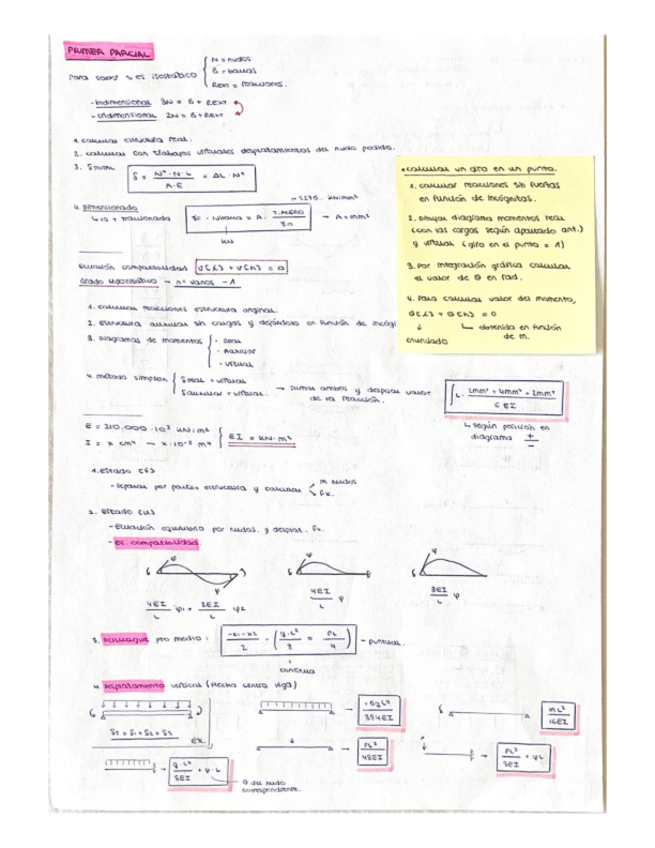 PRIMER PARCIAL
Para saber si es isostático
N = nudos
B = barras
Rext = reacciones.
- bidimensional 3N = B + Rext
- tridimensional 2N = B + Rext
1. calcular estructura real.
2. calcular con trabajos virtuales desplazamientos del nudo perdido.
3. δ TOTAL
δ = N⁰ · N · L / A · E = ΔL · N⁰
4. Dimensionado
↳ + traccionada
→ A = mm²
kN
Ecuación compatibilidad
Grado hiperestático — nº vanos - 1
1. calcular reacciones estructura original.
2. Estructura auxiliar sin cargas y dejándola en función de incógni
3. Diagramas de momentos
- Real
- Auxiliar
- Virtual
4. método simpson
δreal + virtual
δauxiliar + virtual
→ sumar ambos y despejar valor
de la reacción.
↳ según posición en
diagrama + -
• calcular un giro en un punto.
1. calcular reacciones sin fuerzas
en función de incógnitas.
2. Dibujar diagrama momentos real
(con las cargas según apartado ant.)
y virtual (giro en el punto = 1)
3. Por integración gráfica calcular
el valor de θ en rad.
4. Para calcular valor del momento,
= 0
↳ obtenida en función
de m.
enunciado
E = 210.000 · 10³ kN/m²
I = x cm⁴ → x · 10⁻⁸ m⁴
EI = kN · m²
1. Estado (I)
- Separar por partes estructura y calcular
m nudos
Fx.
2. Estado (II)
- Ecuación equilibrio por nudos. y desplaz. Fx.
- ec. compatibilidad.
φ
4EI/L φ₁ + 2EI/L φ₂
4EI/L φ
3EI/L φ
3. pro medio:
q · L²/8 = PL/4
- puntual.
continua
4. Desplazamiento vertical (flecha centro viga)
δT = δ1 + δ2 + δ3
ex.
→ +5qL⁴/384EI
mL²/16EI
→ PL³/48EI
→ PL³/3EI + φL
→ q · L⁴/8EI + φ · L
θ del nudo
correspondiente.